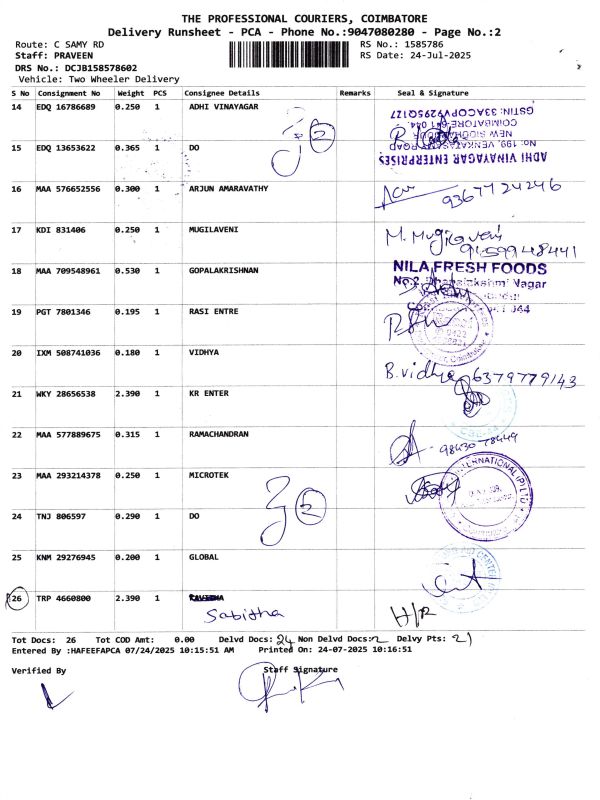 THE PROFESSIONAL COURIERS, COIMBATORE
Delivery Runsheet - PCA - Phone No.:9047080280 - Page No.:2
Route: C SAMY RD RS No.: 1585786
Staff: PRAVEEN RS Date: 24-Jul-2025
DRS No.: DCJB158578602
Vehicle: Two Wheeler Delivery
S No Consignment No Weight PCS Consignee Details Remarks Seal & Signature
14 EDQ 16786689 0.250 1 ADHI VINAYAGAR
GSTIN: 33ACOPV9295Q1Z7
COIMBATORE-641 044
NEW SIDDHAPUDUR
15 EDQ 13653622 0.365 1 DO
No: 199, VENKATASAMY ROAD
ADHI VINAYAGAR ENTERPRISES
16 MAA 576652556 0.300 1 ARJUN AMARAVATHY
9367724246
17 KDI 831406 0.250 1 MUGILAVENI M. Mugilaveni
9159948441
18 MAA 709548961 0.530 1 GOPALAKRISHNAN NILA FRESH FOODS
No.2, Nagar
19 PGT 7801346 0.195 1 RASI ENTRE
20 IXM 508741036 0.180 1 VIDHYA B. vidhya 6379779143
21 WKY 28656538 2.390 1 KR ENTER
22 MAA 577889675 0.315 1 RAMACHANDRAN 9843078449
23 MAA 293214378 0.250 1 MICROTEK INTERNATIONAL (P) LTD
24 TNJ 806597 0.290 1 DO
25 KNM 29276945 0.200 1 GLOBAL
26 TRP 4660800 2.390 1 Sabitha H/R
Tot Docs: 26 Tot COD Amt: 0.00 Delvd Docs: 24 Non Delvd Docs: 2 Delvy Pts: 21
Entered By :HAFEEFAPCA 07/24/2025 10:15:51 AM Printed On: 24-07-2025 10:16:51
Verified By Staff Signature